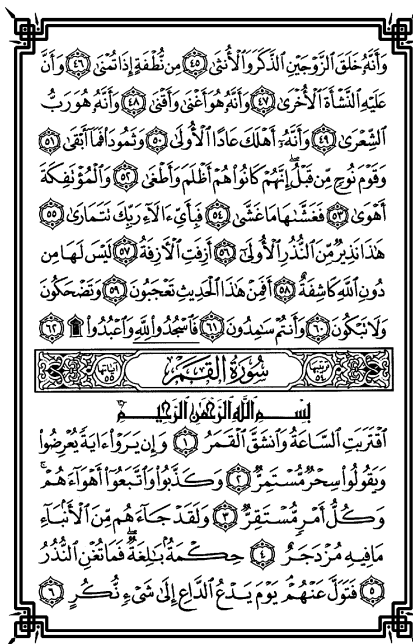 وَأَنَّهُۥ خَلَقَ ٱلزَّوۡجَيۡنِ ٱلذَّكَرَ وَٱلۡأُنثَىٰ ٤٥ مِن نُّطۡفَةٍ إِذَا تُمۡنَىٰ ٤٦ وَأَنَّ
عَلَيۡهِ ٱلنَّشۡأَةَ ٱلۡأُخۡرَىٰ ٤٧ وَأَنَّهُۥ هُوَ أَغۡنَىٰ وَأَقۡنَىٰ ٤٨ وَأَنَّهُۥ هُوَ رَبُّ
ٱلشِّعۡرَىٰ ٤٩ وَأَنَّهُۥٓ أَهۡلَكَ عَادًا ٱلۡأُولَىٰ ٥٠ وَثَمُودَاْ فَمَآ أَبۡقَىٰ ٥١
وَقَوۡمَ نُوحٖ مِّن قَبۡلُۖ إِنَّهُمۡ كَانُواْ هُمۡ أَظۡلَمَ وَأَطۡغَىٰ ٥٢ وَٱلۡمُؤۡتَفِكَةَ
أَهۡوَىٰ ٥٣ فَغَشَّىٰهَا مَا غَشَّىٰ ٥٤ فَبِأَيِّ ءَالَآءِ رَبِّكَ تَتَمَارَىٰ ٥٥
هَٰذَا نَذِيرٞ مِّنَ ٱلنُّذُرِ ٱلۡأُولَىٰٓ ٥٦ أَزِفَتِ ٱلۡأٓزِفَةُ ٥٧ لَيۡسَ لَهَا مِن
دُونِ ٱللَّهِ كَاشِفَةٌ ٥٨ أَفَمِنۡ هَٰذَا ٱلۡحَدِيثِ تَعۡجَبُونَ ٥٩ وَتَضۡحَكُونَ
وَلَا تَبۡكُونَ ٦٠ وَأَنتُمۡ سَٰمِدُونَ ٦١ فَٱسۡجُدُواْۤ لِلَّهِۤ وَٱعۡبُدُواْ ۩ ٦٢
ترتيبها ٥٤ سُورَةُ القَمَر آياتها ٥٥
بِسۡمِ ٱللَّهِ ٱلرَّحۡمَٰنِ ٱلرَّحِيمِ
ٱقۡتَرَبَتِ ٱلسَّاعَةُ وَٱنشَقَّ ٱلۡقَمَرُ ١ وَإِن يَرَوۡاْ ءَايَةٗ يُعۡرِضُواْ
وَيَقُولُواْ سِحۡرٞ مُّسۡتَمِرّٞ ٢ وَكَذَّبُواْ وَٱتَّبَعُوٓاْ أَهۡوَآءَهُمۡۚ
وَكُلُّ أَمۡرٖ مُّسۡتَقِرّٞ ٣ وَلَقَدۡ جَآءَهُم مِّنَ ٱلۡأَنۢبَآءِ
مَا فِيهِ مُزۡدَجَرٌ ٤ حِكۡمَةُۢ بَٰلِغَةٞۖ فَمَا تُغۡنِ ٱلنُّذُرُ
٥ فَتَوَلَّ عَنۡهُمۡۘ يَوۡمَ يَدۡعُ ٱلدَّاعِ إِلَىٰ شَيۡءٖ نُّكُرٍ ٦